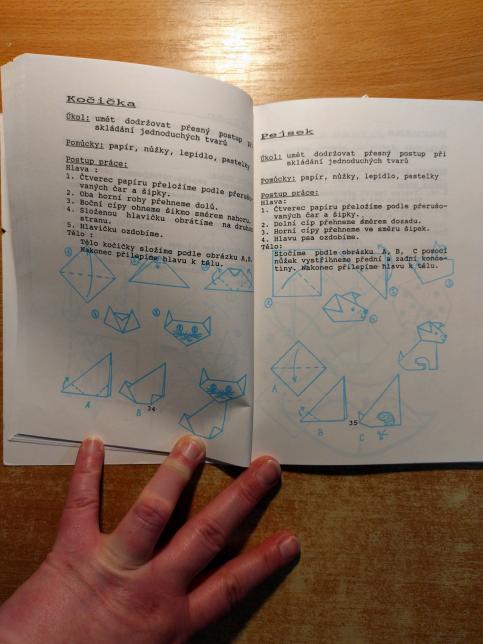 Kočička
Úkol: umět dodržovat přesný postup při
skládání jednoduchých tvarů
Pomůcky: papír, nůžky, lepidlo, pastelky
Postup práce:
Hlava :
1. Čtverec papíru přeložíme podle přerušo-
vaných čar a šipky.
2. Oba horní rohy přehneme dolů.
3. Boční cípy ohneme šikmo směrem nahoru.
4. Složenou hlavičku obrátíme na druhou
stranu.
5. Hlavičku ozdobíme.
Tělo :
Tělo kočičky složíme podle obrázku A,B.
Nakonec přilepíme hlavu k tělu.
A
B
34
Pejsek
Úkol: umět dodržovat přesný postup při
skládání jednoduchých tvarů
Pomůcky: papír, nůžky, lepidlo, pastelky
Postup práce:
Hlava:
1. Čtverec papíru přeložíme podle přerušo-
vaných čar a šipky.
2. Dolní cíp přehneme směrem dozadu.
3. Horní cípy přehneme ve směru šipek.
4. Hlavu psa ozdobíme.
Tělo:
Stočíme podle obrázku A, B, C pomocí
nůžek vystřihneme přední a zadní konče-
tiny. Nakonec přilepíme hlavu k tělu.
A
B
C
35